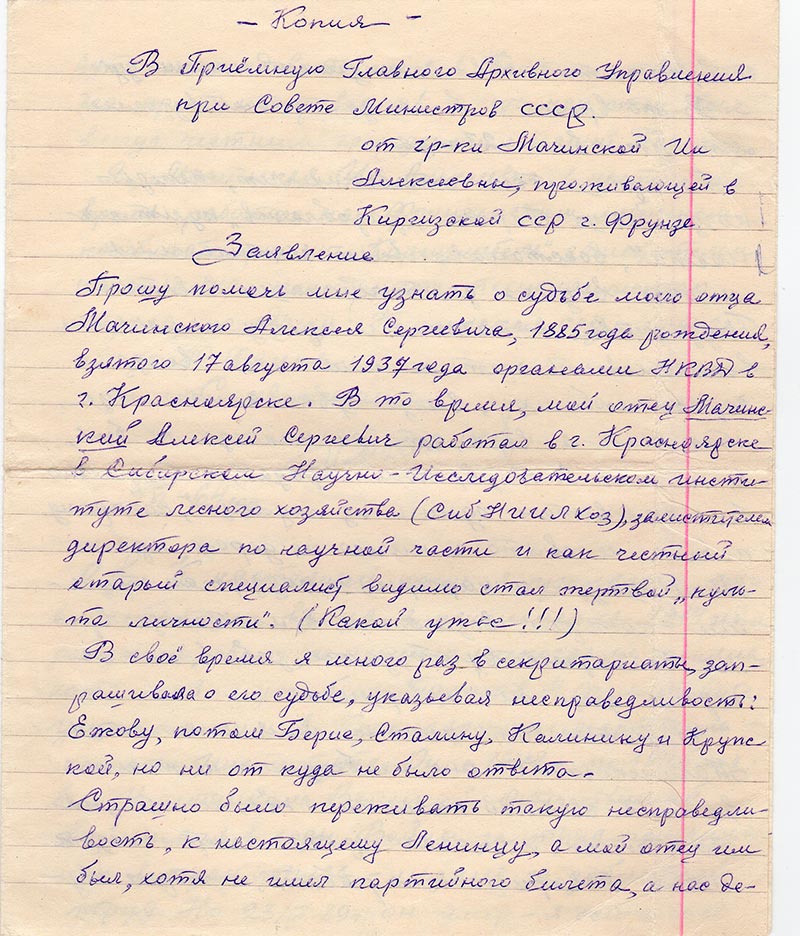 — Копия —
В Приёмную Главного Архивного Управления
при Совете Министров СССР.
от гр-ки Мачинской Ии
Алексеевны, проживающей в
Киргизской ССР г. Фрунзе
Заявление
Прошу помочь мне узнать о судьбе моего отца
Мачинского Алексея Сергеевича, 1885 года рождения,
взятого 17 августа 1937 года органами НКВД в
г. Красноярске. В то время, мой отец Мачинс-
кий Алексей Сергеевич работал в г. Красноярске
в Сибирском Научно-Исследовательском инсти-
туте лесного хозяйства (СибНИИЛХоз), заместителем
директора по научной части и как честный
старый специалист видимо стал жертвой „куль-
та личности". (Какой ужас!!!)
В своё время я много раз в секритариаты, зап-
рашивала о его судьбе, указывая несправедливость:
Ежову, потом Берие, Сталину, Калинину и Крупс-
кой, но ни от куда не было ответа.
Страшно было переживать такую несправедли-
вость, к настоящему Ленинцу, а мой отец им
был, хотя не имел партийного билета, а нас де-